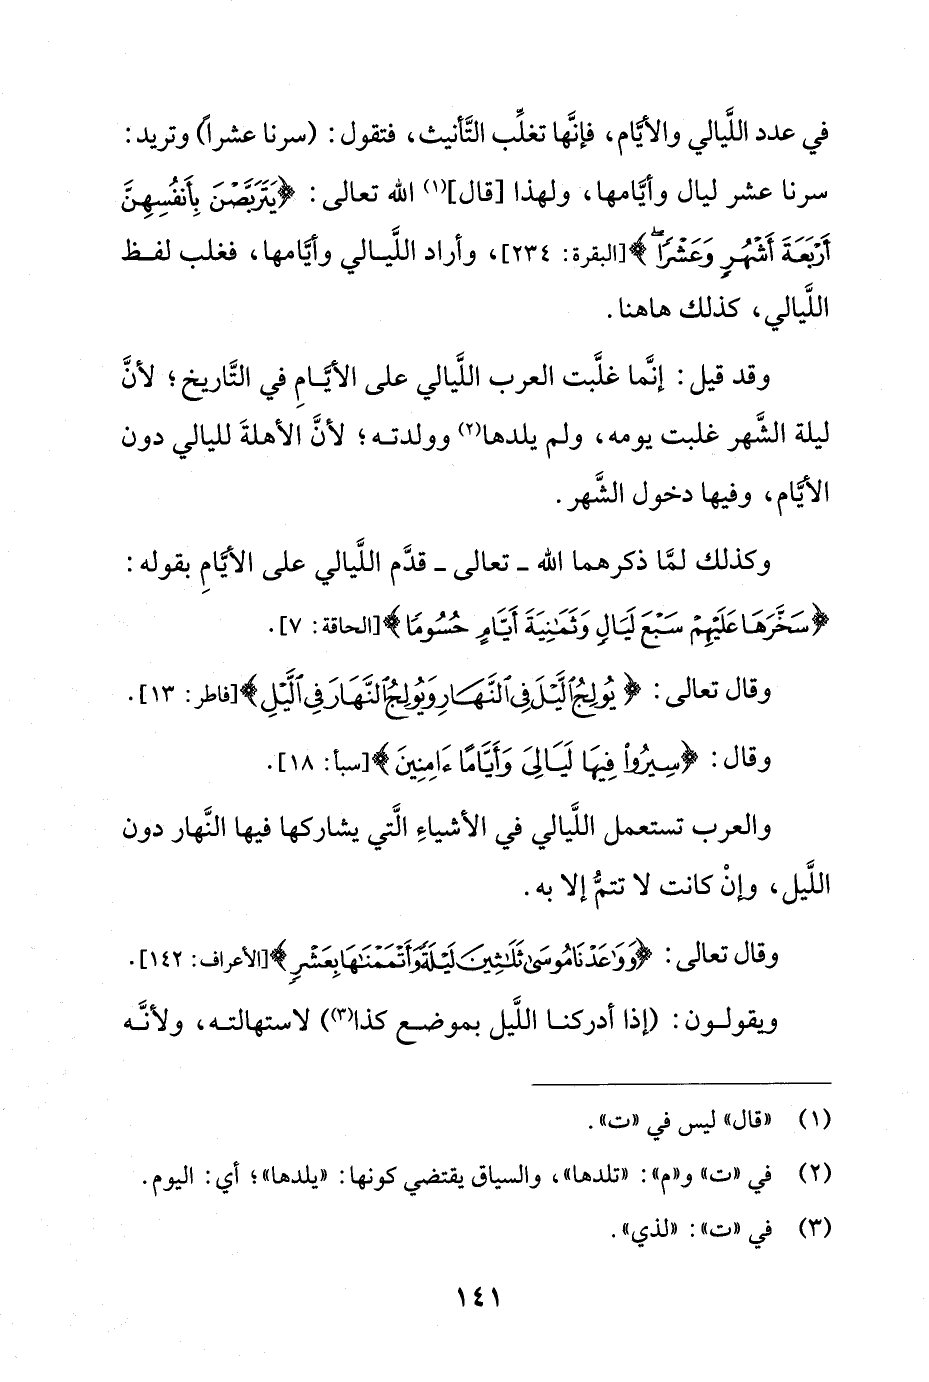 في عدد اللَّيالي والأيَّام، فإنَّها تغلِّب التَّأنيث، فتقول: (سرنا عشراً) وتريد:
سرنا عشر ليال وأيَّامها، ولهذا [قال](١) الله تعالى: ﴿يَتَرَبَّصْنَ بِأَنفُسِهِنَّ
أَرْبَعَةَ أَشْهُرٍ وَعَشْرًا﴾[البقرة: ٢٣٤]، وأراد اللَّيالي وأيَّامها، فغلب لفظ
اللَّيالي، كذلك هاهنا.
وقد قيل: إنَّما غلَّبت العرب اللَّيالي على الأيَّامِ في التَّاريخ؛ لأنَّ
ليلة الشَّهر غلبت يومه، ولم يلدها(٢) وولدته؛ لأنَّ الأهلةَ لليالي دون
الأيَّام، وفيها دخول الشَّهر.
وكذلك لمَّا ذكرهما الله ـ تعالى ـ قدَّم اللَّيالي على الأيَّامِ بقوله:
﴿سَخَّرَهَا عَلَيْهِمْ سَبْعَ لَيَالٍ وَثَمَٰنِيَةَ أَيَّامٍ حُسُومًا﴾[الحاقة: ٧].
وقال تعالى: ﴿يُولِجُ ٱلَّيْلَ فِى ٱلنَّهَارِ وَيُولِجُ ٱلنَّهَارَ فِى ٱلَّيْلِ﴾[فاطر: ١٣].
وقال: ﴿سِيرُوا۟ فِيهَا لَيَالِىَ وَأَيَّامًا ءَامِنِينَ﴾[سبأ: ١٨].
والعرب تستعمل اللَّيالي في الأشياءِ الَّتي يشاركها فيها النَّهار دون
اللَّيل، وإنْ كانت لا تتمُّ إلا به.
وقال تعالى: ﴿وَوَٰعَدْنَا مُوسَىٰ ثَلَٰثِينَ لَيْلَةً وَأَتْمَمْنَٰهَا بِعَشْرٍ﴾[الأعراف: ١٤٢].
ويقولون: (إذا أدركنا اللَّيل بموضع كذا(٣)) لاستهالته، ولأنَّه
(١) «قال» ليس في «ت».
(٢) في «ت» و«م»: «تلدها»، والسياق يقتضي كونها: «يلدها»؛ أي: اليوم.
(٣) في «ت»: «لذي».
١٤١